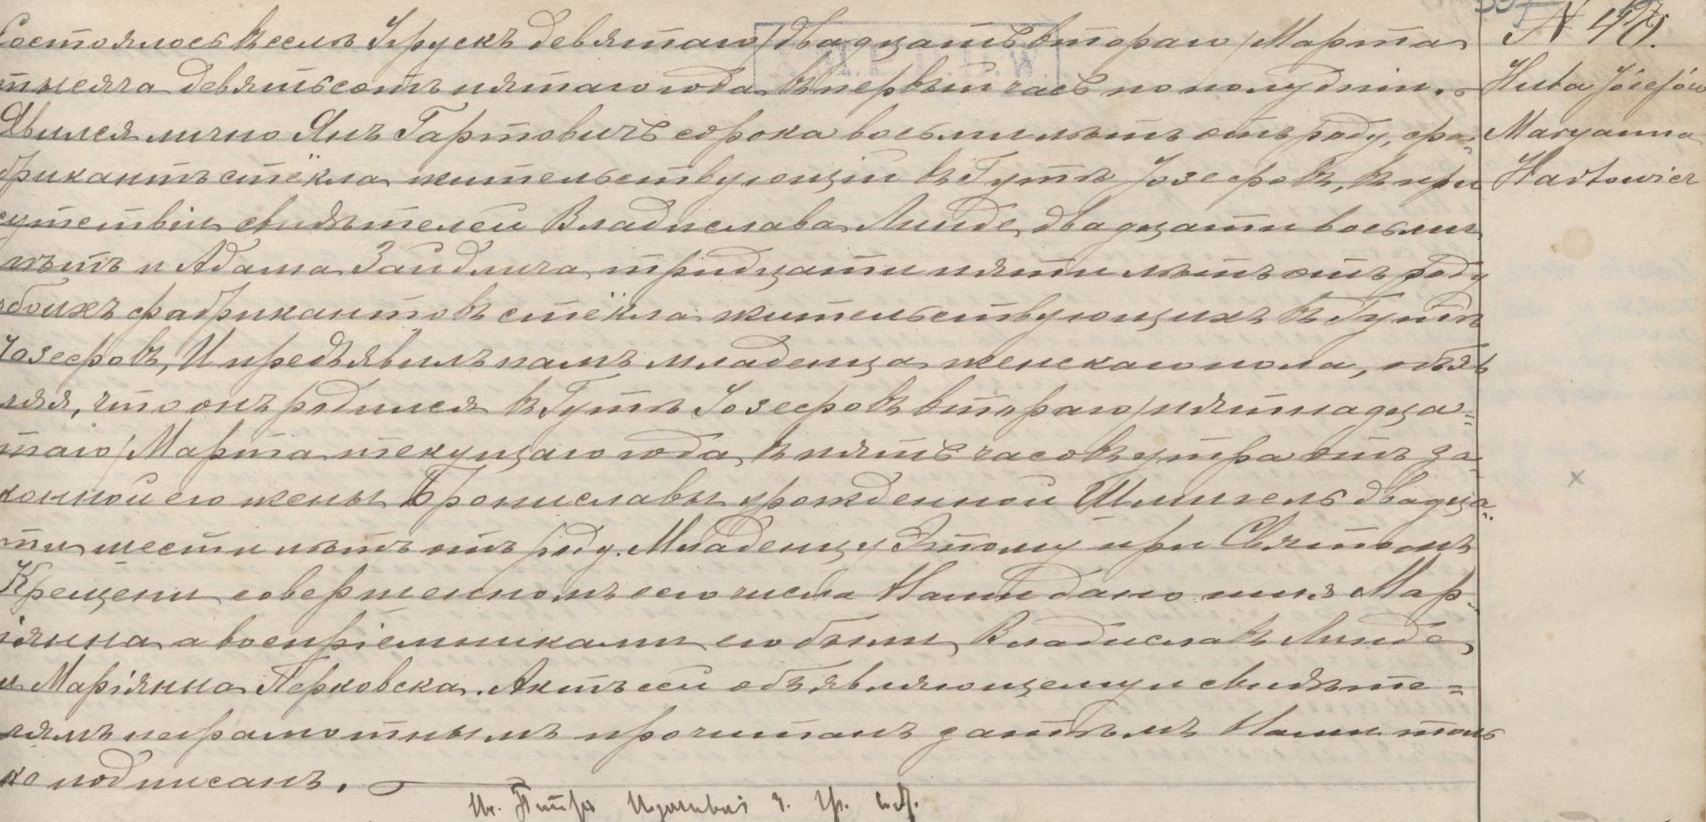 Состоялось въ селѣ Ирускъ девятаго /двадцать втораго/ Марта
тысяча девятьсотъ пятаго года въ первый часъ по полудни.
Явился лично Янъ Гартовичъ сорока восьми лѣтъ отъ роду, фа=
брикантъ стёкла жительствующій въ Гутѣ Юзефовъ, въ при
сутствіи свидѣтелей Владислава Линде, двадцати восьми
лѣтъ и Адама Зайдлича тридцати пяти лѣтъ отъ роду
обоихъ фабрикантовъ стёкла жительствующихъ въ Гутѣ
Юзефовъ, И предъявилъ намъ младенца женскаго пола, объяв
ляя, что онъ родился въ Гутѣ Юзефовъ втораго /пятнадца=
таго/ Марта текущаго года, въ пять часовъ утра отъ за
конной его жены Брониславы урожденной двадца=
ти шести лѣтъ отъ роду. Младенцу Этому при Святомъ
Крещени совершенномъ сего числа Нами дано имя Мар=
іянна а воспріемниками его были Владиславъ Линде
и Маріянна Перковска. Актъ сей объявляющему и свидѣте=
лямъ неграмотнымъ прочитанъ затѣмъ Нами толь
ко подписанъ.
N 49.
Huta Józefów
Maryanna
Hartowicz